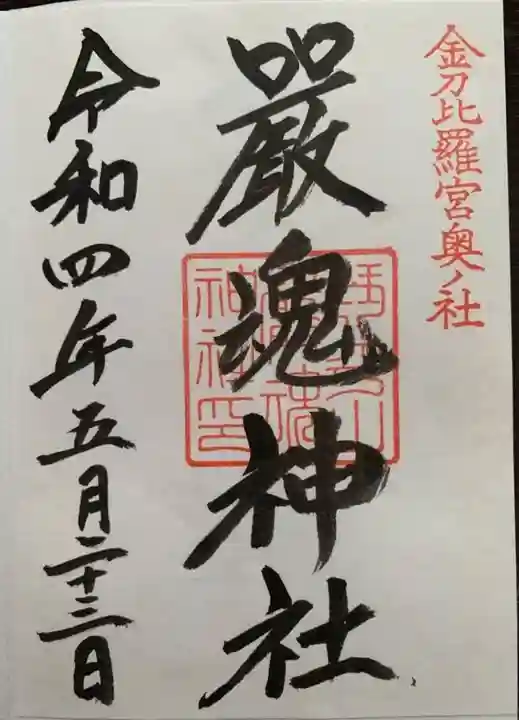 金刀比羅宮奥ノ社
嚴魂神社
令和四年五月二十三日